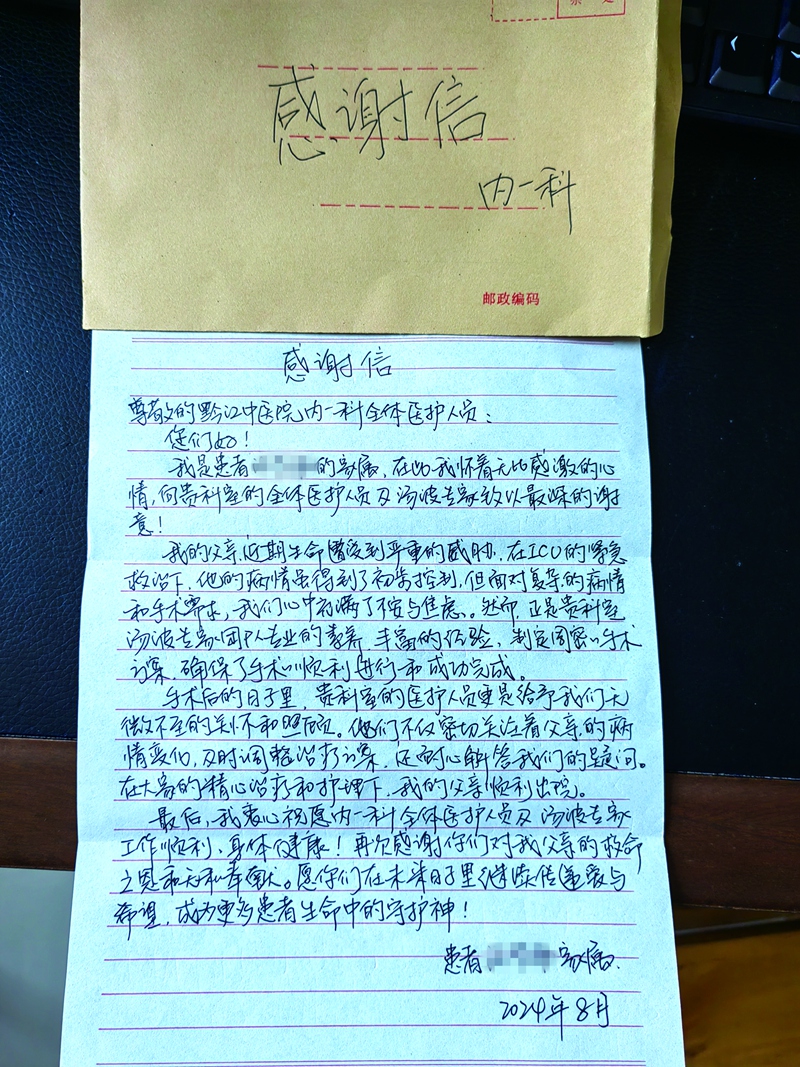 感谢信
内一科
邮政编码
感谢信
尊敬的黔江中医院内一科全体医护人员：
您们好！
我是患者的家属，在此我怀着无比感激的心
情，向贵科室的全体医护人员及汤波专家致以最深的谢
意！
我的父亲近期生命遭受到严重的威胁，在ICU的紧急
救治下，他的病情虽得到了初步控制，但面对复杂的病情
和手术需求，我们心中充满了不安与焦虑。然而，正是贵科室
汤波专家团队专业的素养，丰富的经验，制定周密的手术
方案，确保了手术的顺利进行和成功完成。
手术后的日子里，贵科室的医护人员更是给予我们无
微不至的关怀和照顾。他们不仅密切关注着父亲的病
情变化，及时调整治疗方案，还耐心解答我们的疑问。
在大家的精心治疗和护理下，我的父亲顺利出院。
最后，我衷心祝愿内一科全体医护人员及汤波专家
工作顺利，身体健康！再次感谢你们对我父亲的救命
之恩和无私奉献。愿你们在未来日子里继续传递爱与
希望，成为更多患者生命中的守护神！
患者 家属
2024年8月